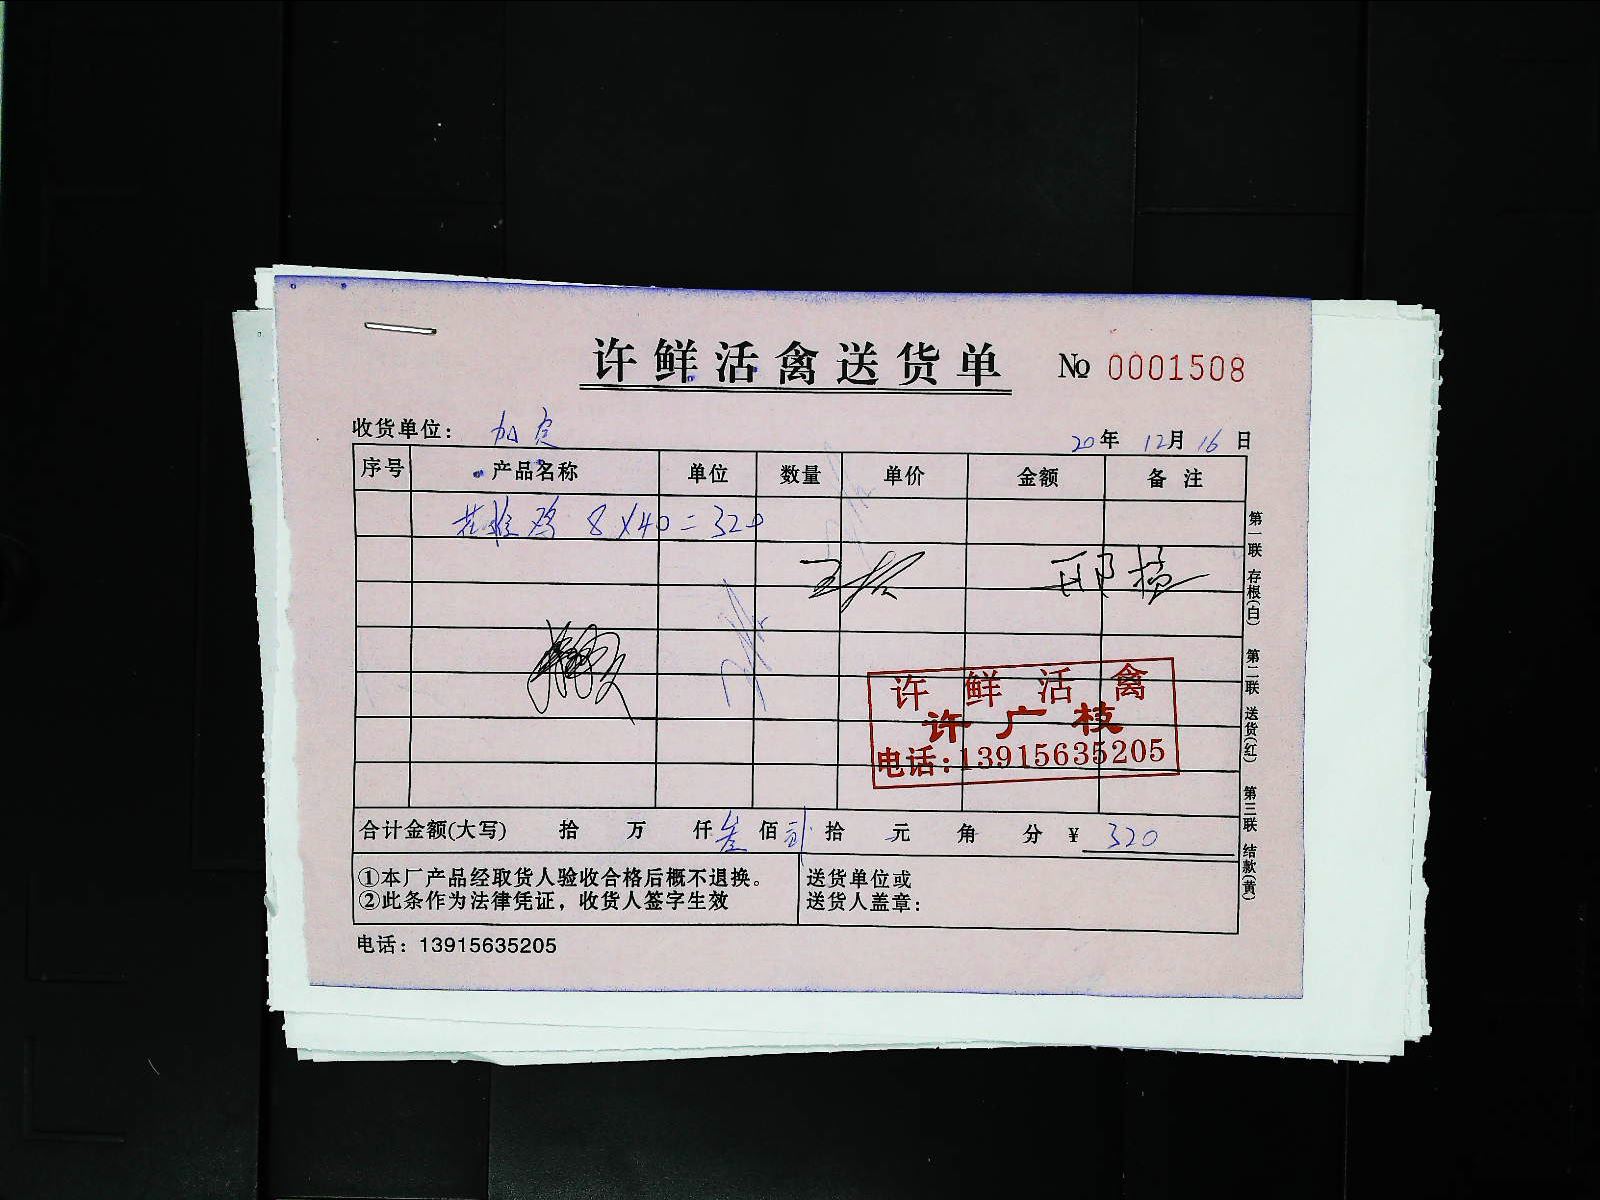 许鲜活禽送货单 № 0001508
收货单位： 加定 20年 12月 16日
序号 产品名称 单位 数量 单价 金额 备注
鸡 8×40=320
许鲜活禽
许广枝
电话:13915635205
合计金额(大写) 拾 万 仟 叁 佰 贰 拾 元 角 分 ¥ 320
①本厂产品经取货人验收合格后概不退换。
②此条作为法律凭证，收货人签字生效
送货单位或
送货人盖章：
电话：13915635205
第一联 存根(白) 第二联 送货(红) 第三联 结款(黄)